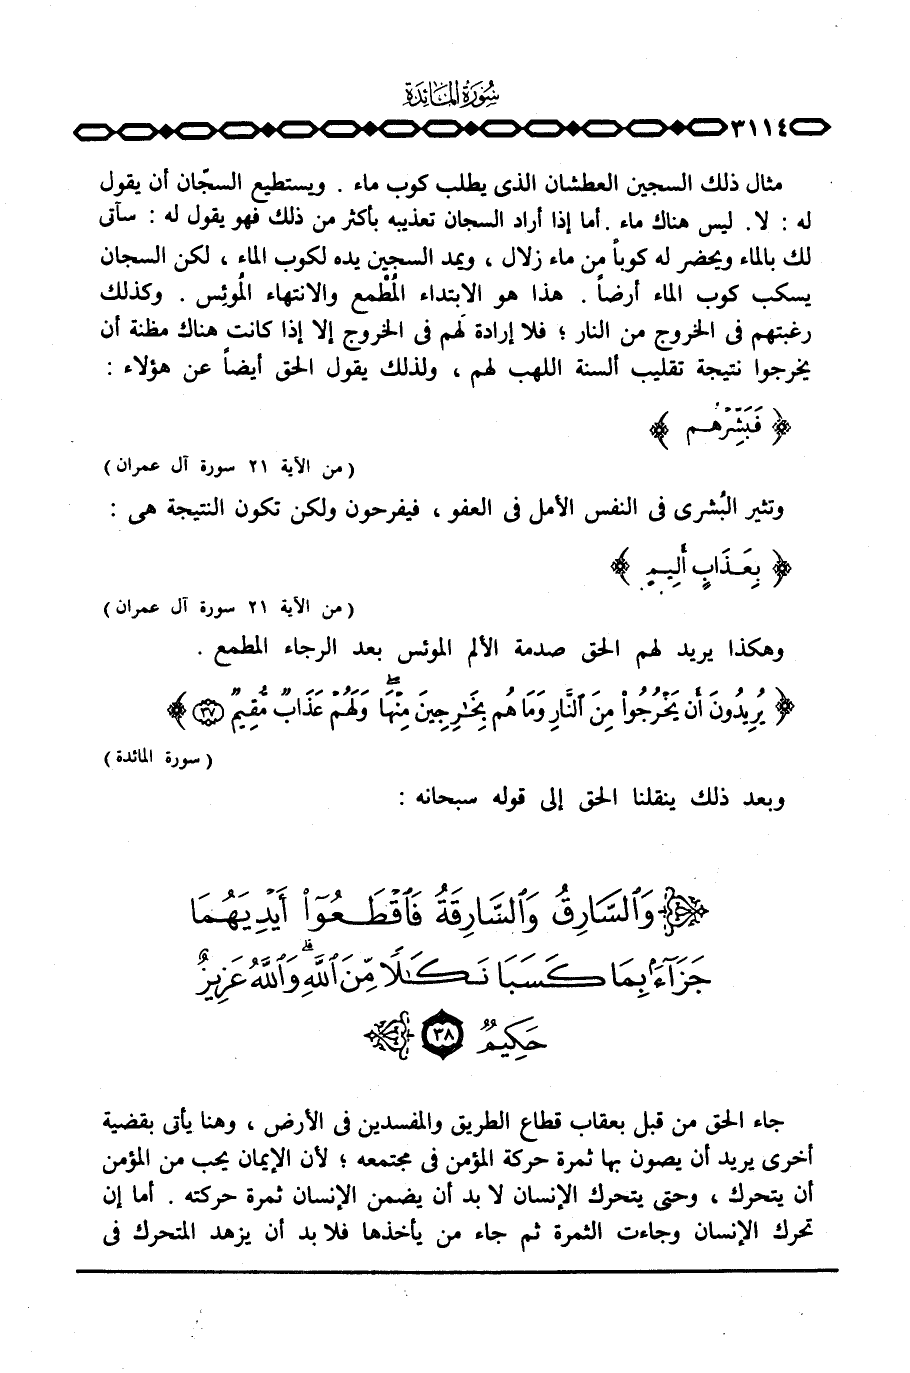 سُورَةُ المَائِدَة
٣١١٤
مثال ذلك السجين العطشان الذى يطلب كوب ماء . ويستطيع السجّان أن يقول
له : لا. ليس هناك ماء .أما إذا أراد السجان تعذيبه بأكثر من ذلك فهو يقول له : سآتى
لك بالماء ويحضر له كوباً من ماء زلال ، ويمد السجين يده لكوب الماء ، لكن السجان
يسكب كوب الماء أرضاً . هذا هو الابتداء المُطْمع والانتهاء المُوئِس . وكذلك
رغبتهم فى الخروج من النار ؛ فلا إرادة لهم فى الخروج إلا إذا كانت هناك مظنة أن
يخرجوا نتيجة تقليب ألسنة اللهب لهم ، ولذلك يقول الحق أيضاً عن هؤلاء :
﴿ فَبَشِّرْهُم ﴾
( من الآية ٢١ سورة آل عمران )
وتثير البُشرى فى النفس الأمل فى العفو ، فيفرحون ولكن تكون النتيجة هى :
﴿ بِعَذَابٍ أَلِيمٍ ﴾
( من الآية ٢١ سورة آل عمران )
وهكذا يريد لهم الحق صدمة الألم الموئس بعد الرجاء المطمع .
﴿ يُرِيدُونَ أَن يَخْرُجُوا۟ مِنَ ٱلنَّارِ وَمَا هُم بِخَـٰرِجِينَ مِنْهَا ۖ وَلَهُمْ عَذَابٌ مُّقِيمٌ ٣٧ ﴾
( سورة المائدة )
وبعد ذلك ينقلنا الحق إلى قوله سبحانه :
﴿ وَٱلسَّارِقُ وَٱلسَّارِقَةُ فَٱقْطَعُوٓا۟ أَيْدِيَهُمَا
جَزَآءًۢ بِمَا كَسَبَا نَكَـٰلًا مِّنَ ٱللَّهِ ۗ وَٱللَّهُ عَزِيزٌ
حَكِيمٌ ٣٨ ﴾
جاء الحق من قبل بعقاب قطاع الطريق والمفسدين فى الأرض ، وهنا يأتى بقضية
أخرى يريد أن يصون بها ثمرة حركة المؤمن فى مجتمعه ؛ لأن الإيمان يحب من المؤمن
أن يتحرك ، وحتى يتحرك الإنسان لا بد أن يضمن الإنسان ثمرة حركته . أما إن
تحرك الإنسان وجاءت الثمرة ثم جاء من يأخذها فلا بد أن يزهد المتحرك فى